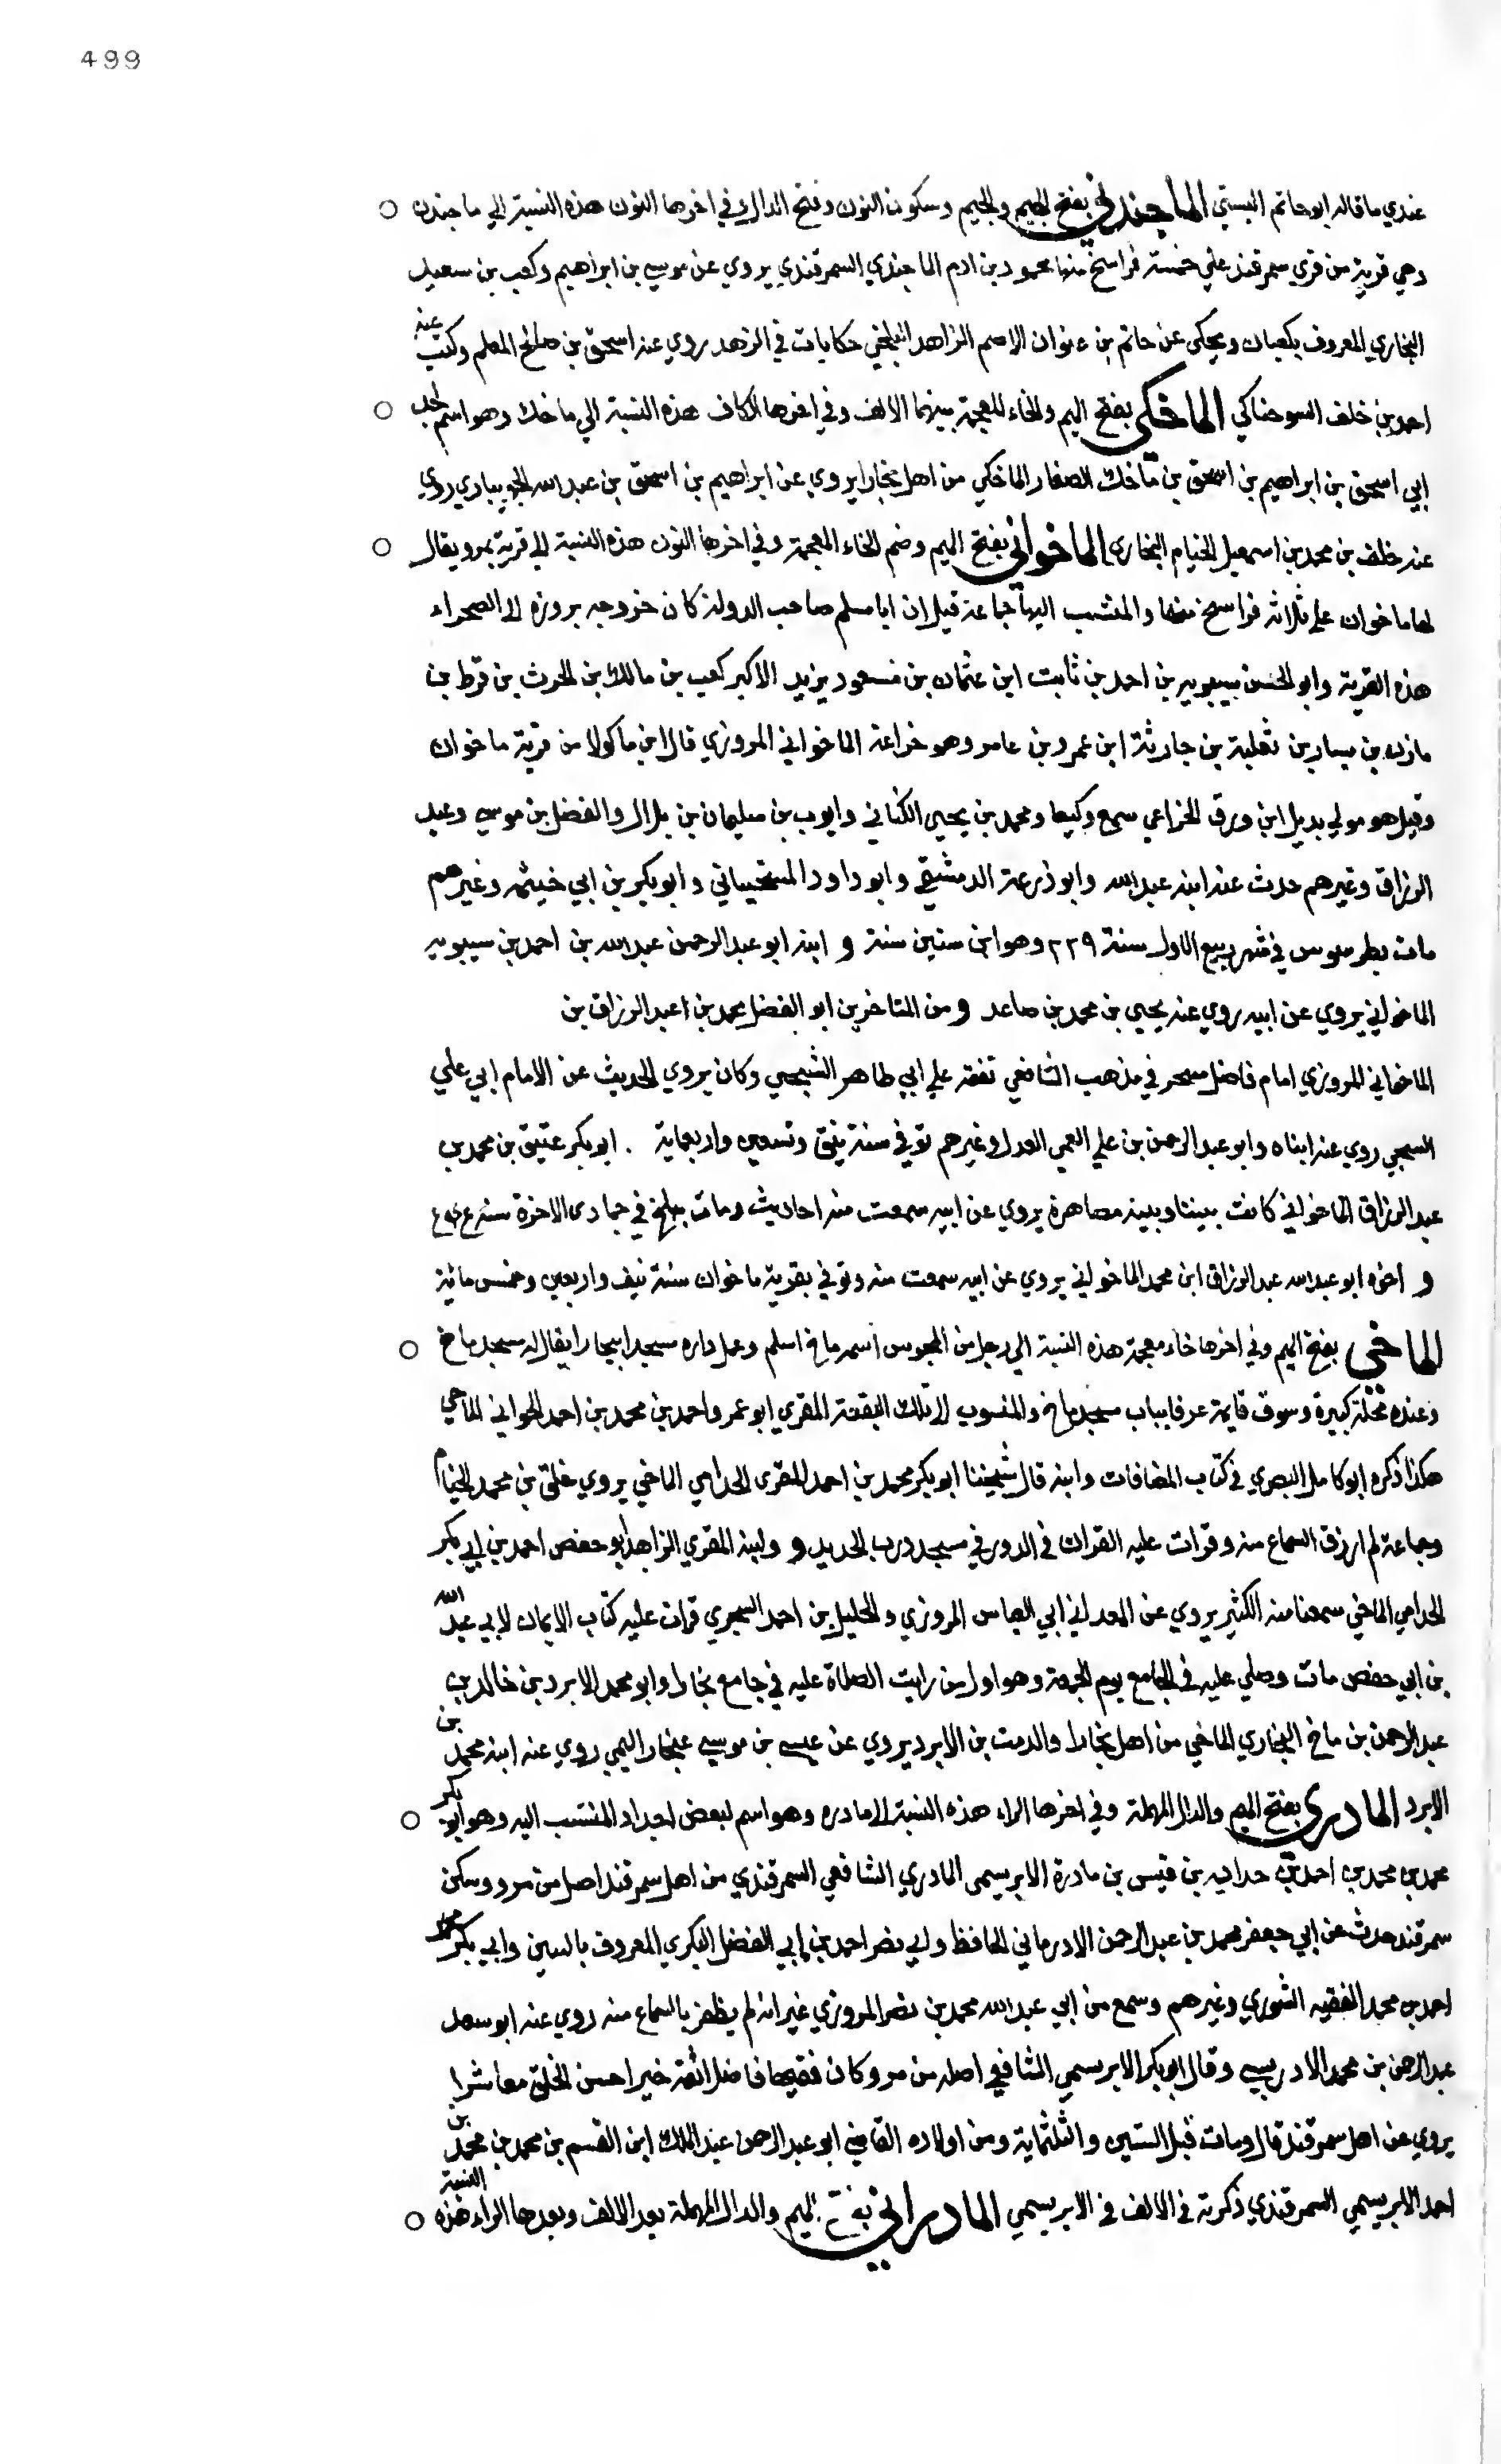 499
عندي ما قاله ابو حاتم البستي الماجندني بفتح الميم والجيم وسكون النون وفتح الدال وفي اخرها النون هذه النسبة الي ماجندن
وهي قرية من قري سمرقند علي خمسة فراسخ منها محمود بن ادم الماجندي السمرقندي يروي عن موسي بن ابراهيم وكعب بن سعيد
البخاري المعروف بكعبان ويحكي عن حاتم بن عنوان الاصم الزاهد البلخي حكايات في الزهد روي عنه اسحق بن صالح المعلم وكتب عنه
احمد بن خلف السوخناكي الماخكي بفتح الميم والخاء المعجمة بينهما الالف وفي اخرها الكاف هذه النسبة الي ماخك وهو اسم لجد
ابي اسحق بن ابراهيم بن اسحق بن ماخك الصفار الماخكي من اهل بخارا يروي عن ابراهيم بن اسحق بن عبد الله الجويباري روي
عنه خلف بن محمد بن اسمعيل الخيام البخاري الماخواني بفتح الميم وضم الخاء المعجمة وفي اخرها النون هذه النسبة الي قرية بمرو يقال
لها ماخوان علي ثلاثة فراسخ منها والمنتسب اليها جماعة قيل ان ابا مسلم صاحب الدولة كان خروجه بروزه الي الصحراء
هذه القرية وابو الحسن سيبويه بن احمد بن ثابت ابن عثمان بن مسعود يزيد الاكبر كعب بن مالك بن الحرث بن قرط بن
مازن بن سيار بن ثعلبة بن حارثة ابن عمرو بن عامر وهو خزاعة الماخواني المروزي قال ابن ماكولا من قرية ماخوان
وقيل هو مولي بديل ابن ورق الخزاعي سمع وكيعا ومحمد بن يحيي الكناني وايوب بن سليمان بن بلال والفضل بن موسي وعبد
الرزاق وغيرهم حدث عنه ابنه عبد الله وابو زرعة الدمشقي وابو داود السختياني وابو بكر بن ابي خيثمه وغيرهم
مات بطرسوس في شهر ربيع الاول سنة ٢٢٩ وهو ابن ستين سنة و ابنه ابو عبد الرحمن عبد الله بن احمد بن سيبويه
الماخواني يروي عن ابيه روي عنه يحيي بن محمد بن صاعد و من المتاخرين ابو الفضل محمد بن عبد الرزاق بن
الماخواني المروزي امام فاضل متبحر في مذهب الشافعي تفقه علي ابي طاهر الشيحي وكان يروي الحديث عن الامام ابي علي
السبحي روي عنه ابناه وابو عبد الرحمن بن علي العمي العدل وغيرهم توفي في سنة نيف وتسعين واربعماية . ابو بكر عتيق بن محمد بن
عبد الرزاق الماخواني كانت بيننا وبينه مصاهرة يروي عن ابيه سمعت منه احاديث ومات ببلخ في جمادي الاخرة سنة
و اخوه ابو عبد الله عبد الرزاق ابن محمد الماخواني يروي عن ابيه سمعت منه وتوفي بقرية ماخوان سنة نيف واربعين وخمس مائة
الماخي بفتح الميم وفي اخرها خاء معجمة هذه النسبة الي رجل من المجوس اسمه ماخ اسلم وعمل داره مسجدا ببخارا يقال له مسجد ماخ
وعنده محلة كبيرة وسوق قايمة عرفا بباب مسجد ماخ والمنسوب الي تلك البقعة المقري ابو عمرو احمد بن محمد بن احمد الماخي
هكذا ذكره ابو كامل البصري في كتاب المضافات وابنه قال شيخنا ابو بكر محمد بن احمد المقري الحدامي الماخي يروي خلق بن محمد الخيام
وجماعة لم ارزق السماع منه وقرات عليه القران في الدور في مسجد درب الحديد و وابنه المقري الزاهد ابو حفص احمد بن ابي بكر
الحدامي الماخي سمعنا منه الكثير يروي عن المعداني ابي العباس المروزي والخليل بن احمد السجزي قرات عليه كتاب الايمان لابي عبد الله
بن ابي حفص مات وصلي عليه في الجامع يوم الجمعة وهو اول من رايت الصلاة عليه في جامع بخارا وابو محمد الابرد بن خالد بن
عبد الرحمن بن ماخ البخاري الماخي من اهل بخارا والد مت بن الابرد يروي عن عيسي بن موسي غنجار التيمي روي عنه ابنه محمد بن
الابرد المادري بفتح الميم والدال المهملة وفي اخرها الراء هذه النسبة الي مادره وهو اسم لبعض اجداد المنتسب اليه وهو ابو بكر
محمد بن محمد بن احمد بن قيس بن مادرة الابريسمي المادري الشافعي السمرقندي من اهل سمرقند اصله من مرو وسكن
سمرقند حدث عن ابي جعفر محمد بن عبد الرحمن الادرماني الحافظ وابي نصر احمد بن ابي الفضل البكري المعروف بالسين وابي بكر محمد
احمد بن محمد الفقيه الشوري وغيرهم وسمع من ابي عبد الله محمد بن نصر المروزي غير انه لم يظفر بالسماع منه روي عنه ابو سعد
عبد الرحمن بن محمد الادريسي وقال ابو بكر الابريسمي الشافعي اصله من مرو وكان فقيها فاضلا ثقة خيرا حسن الخلق معاشرا
يروي عن اهل سمرقند قال ومات قبل الستين والثلثماية ومن اولاده القاضي ابو عبد الرحمن عبد الملك ابن القسم بن محمد بن محمد بن
احمد الابريسمي السمرقندي ذكرته في الالف في الابريسمي المادراني بفتح الميم والدال المهملة بعد الالف وبعدها الراء هذه النسبة